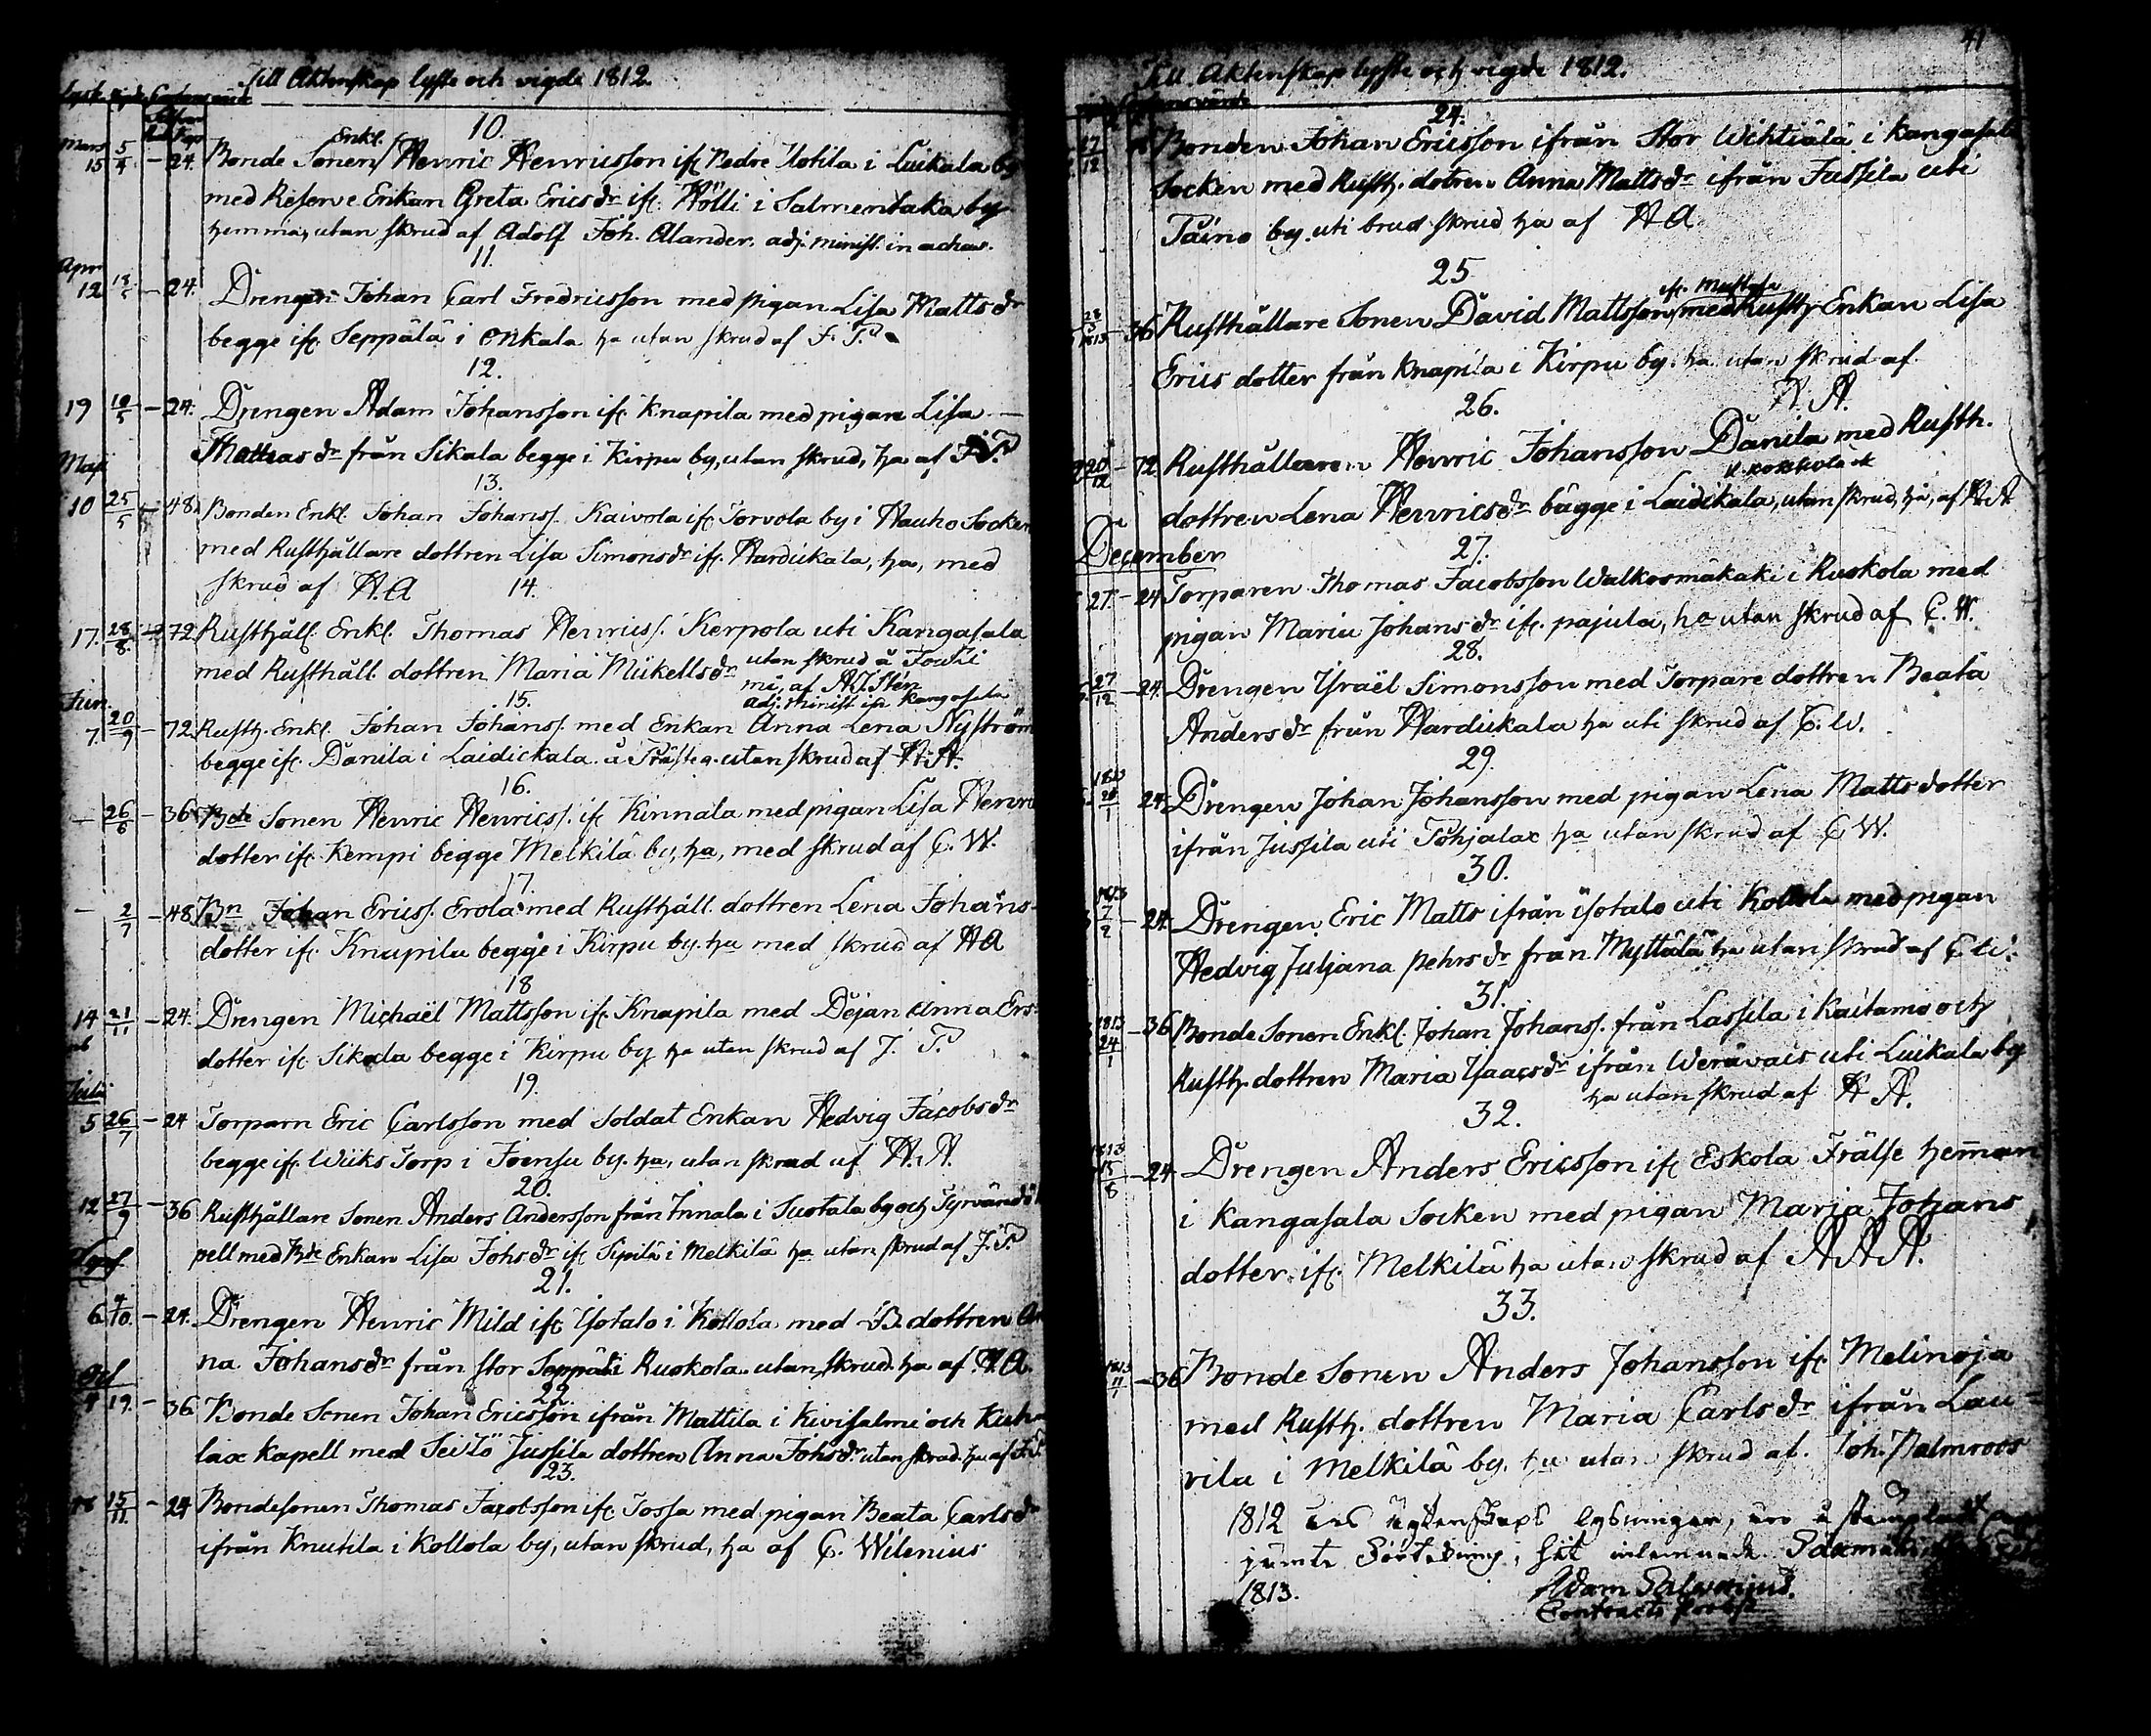 Till Äktenskap lyste och vigde 1812
10.
Mars 15 5/4 – 24. Bonde Sonen Enkl. Henric Henricsson ifr. Nedre Uotila i Luikala by
med Reserve Enkan Greta Ericsdr ifr. Hölli i Salmentaka by
hemma, utan skrud af Adolf Joh. Alander. adj. minist.
11.
Apr. 12 – 24. Drengen Johan Carl Fredricsson med pigan Lisa Mattsdr
begge ifr. Seppälä i Onkala ha utan skrud af J. P.
12.
19 10/5 – 24. Drengen Adam Johansson ifr. Knapila med pigan Lisa
Matliasdr från Sikala begge i Kirpu by, utan skrud, ha af J. P.
Maji
13.
10 25/5 – 48. Bonden Enkl. Johan Johanss. Kaivola ifr. Torvola by i Hauho Socken
med Rusthållare dottren Lisa Simonsdr ifr. Hardickala, ha, med
skrud af H. A
14.
17. 28/8 – 72 Rusthåll. Enkl. Thomas Henricss. Kerpola uti Kangasala
med Rusthåll. dottren Maria Mickelsdr utan skrud å Toutti
mä, af A.J. Stén
adj. minist. in Kangasala
Jun.
15.
7. 20/9 – 72 Rusth. Enkl. Johan Johanss. med Enkan Anna Lena Nyström
begge ifr. Danila i Laidickala å Präste g. utan skrud af H. A.
16.
– 26/6 – 36 Bde Sonen Henric Henricss. ifr Kinnala med pigan Lisa Henric
dotter ifr. Kempi begge Melkilä by, ha, med skrud af C. W.
17.
– 2/7 – 48 Bn Johan Ericss. Erola med Rusthåll. dottren Lena Johans-
dotter ifr. Knapila begge i Kirpu by. ha med skrud af H A
18
14 21/11 – 24. Drengen Michaël Mattsson ifr. Knapila med Dejan Anna Ers-
dotter ifr. Sikala begge i Kirpu by ha utan skrud af J. P.
19.
Julii
5 26/7 – 24 Torparn Eric Carlsson med Soldat Enkan Hedvig Jacobsdr
begge ifr. Wiiks Torp i Joensu by. ha, utan skrud af H. A.
20.
12 27/9 – 36 Rusthållare Sonen Anders Andersson från Innala i Suotala by och Tyrvändö
pell med Bde Enkan Lisa Johsdr ifr. Sipilä i Melkilä ha utan skrud af J. P.
Sept.
21.
6 4/10. – 24. Drengen Henric Mild ifr. Isotalo i Kollola med B. dottren An
na Johansdr från Stor Seppä i Ruokola utan skrud ha af H. A
Oct
22.
4 19. – 36 Bonde Sonen Johan Ericsson ifrån Mattila i Kivisalmi och Kuh-
lax Kapell med Jussila dottren Anna Johsdr. utan skrud. ha af J. P.
23.
18 15/11. – 24 Bondesonen Thomas Jacobsson ifr. Jossa med pigan Beata Carlsdr
ifrån Knutila i Kollola by, utan skrud, ha af C. Wilenius
41
Till Äktenskap lyste och vigde 1812.
24.
27/12 Bonden Johan Ericsson ifrån Stor Wihtiälä i Kangasala
Socken med Rusth. dotren Anna Mattsdr ifrån Jussila uti
Päino by. uti brud skrud ha af H A
25
28 1813 – 36 Rusthållare Sonen David Mattsson ifr. Mattila med Rusth. Enkan Lisa
Erics dotter från Knapila i Kirpu by. ha utan skrud af
H. A.
26.
20/12 – 72. Rusthållaren Henric Johansson Danila med Rusth.
dottren Lena Henricsdr bägge i Laidikala, utan skrud, ha, af H. A
December
27.
27. – 24 Torparen Thomas Jacobsson Walkosmäkäki i Ruokola med
pigan Maria Johansdr ifr. pajula, ha utan skrud af C. W.
28.
27/12 – 24. Drengen Israël Simonsson med Torpare dottren Beata
Andersdr från Hardickala ha uti skrud af C. W.
29.
1813 – 24. Drengen Johan Johansson med pigan Lena Mattsdotter
ifrån Jussila uti Pohjalax ha utan skrud af C W.
30.
1813 7/2 – 24. Drengen Eric Matts ifrån Isotalo uti Kollola med pigan
Hedvig Juljana Pehrsdr från Myttälä ha utan skrud af C W.
31.
1813 24/1 – 36 Bonde Sonen Enkl. Johan Johanss. från Lassila i Kaitamo och
Rusth. dottren Maria Isaacsdr ifrån Werävais uti Luikala by
ha utan skrud af H A.
32.
1813 15/8 – 24 Drengen Anders Ericsson ifr Eskola Frälse heman
i Kangasala Socken med pigan Maria Johans
dotter ifr. Melkilä ha utan skrud af A A A.
33.
1813 11/7 – 36 Bonde Sonen Anders Johansson ifr. Melinoja
med Rusth. dottren Maria Carlsdr ifrån Lau-
rila i Melkilä by. ha utan skrud af. Joh. Palmroos
1812 års Ägtenskaps lysningar, äro å stemplad
jämte hit inlemnade Sääxmäki
1813.
Adam Salvenius.
Contracts Probst